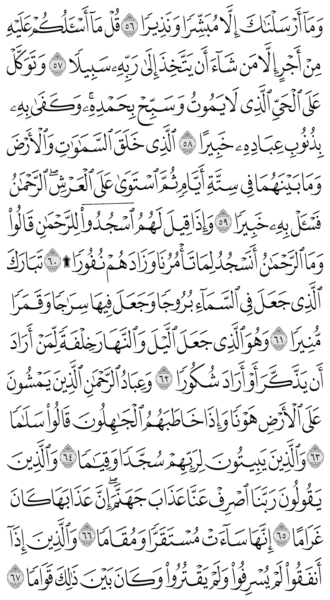 وَمَآ أَرْسَلْنَٰكَ إِلَّا مُبَشِّرًا وَنَذِيرًا ٥٦ قُلْ مَآ أَسْـَٔلُكُمْ عَلَيْهِ
مِنْ أَجْرٍ إِلَّا مَن شَآءَ أَن يَتَّخِذَ إِلَىٰ رَبِّهِۦ سَبِيلًا ٥٧ وَتَوَكَّلْ
عَلَى ٱلْحَىِّ ٱلَّذِى لَا يَمُوتُ وَسَبِّحْ بِحَمْدِهِۦ ۚ وَكَفَىٰ بِهِۦ
بِذُنُوبِ عِبَادِهِۦ خَبِيرًا ٥٨ ٱلَّذِى خَلَقَ ٱلسَّمَٰوَٰتِ وَٱلْأَرْضَ
وَمَا بَيْنَهُمَا فِى سِتَّةِ أَيَّامٍ ثُمَّ ٱسْتَوَىٰ عَلَى ٱلْعَرْشِ ۚ ٱلرَّحْمَٰنُ
فَسْـَٔلْ بِهِۦ خَبِيرًا ٥٩ وَإِذَا قِيلَ لَهُمُ ٱسْجُدُوا۟ لِلرَّحْمَٰنِ قَالُوا۟
وَمَا ٱلرَّحْمَٰنُ أَنَسْجُدُ لِمَا تَأْمُرُنَا وَزَادَهُمْ نُفُورًا ۩ ٦٠ تَبَارَكَ
ٱلَّذِى جَعَلَ فِى ٱلسَّمَآءِ بُرُوجًا وَجَعَلَ فِيهَا سِرَٰجًا وَقَمَرًا
مُّنِيرًا ٦١ وَهُوَ ٱلَّذِى جَعَلَ ٱلَّيْلَ وَٱلنَّهَارَ خِلْفَةً لِّمَنْ أَرَادَ
أَن يَذَّكَّرَ أَوْ أَرَادَ شُكُورًا ٦٢ وَعِبَادُ ٱلرَّحْمَٰنِ ٱلَّذِينَ يَمْشُونَ
عَلَى ٱلْأَرْضِ هَوْنًا وَإِذَا خَاطَبَهُمُ ٱلْجَٰهِلُونَ قَالُوا۟ سَلَٰمًا
٦٣ وَٱلَّذِينَ يَبِيتُونَ لِرَبِّهِمْ سُجَّدًا وَقِيَٰمًا ٦٤ وَٱلَّذِينَ
يَقُولُونَ رَبَّنَا ٱصْرِفْ عَنَّا عَذَابَ جَهَنَّمَ ۖ إِنَّ عَذَابَهَا كَانَ
غَرَامًا ٦٥ إِنَّهَا سَآءَتْ مُسْتَقَرًّا وَمُقَامًا ٦٦ وَٱلَّذِينَ إِذَآ
أَنفَقُوا۟ لَمْ يُسْرِفُوا۟ وَلَمْ يَقْتُرُوا۟ وَكَانَ بَيْنَ ذَٰلِكَ قَوَامًا ٦٧